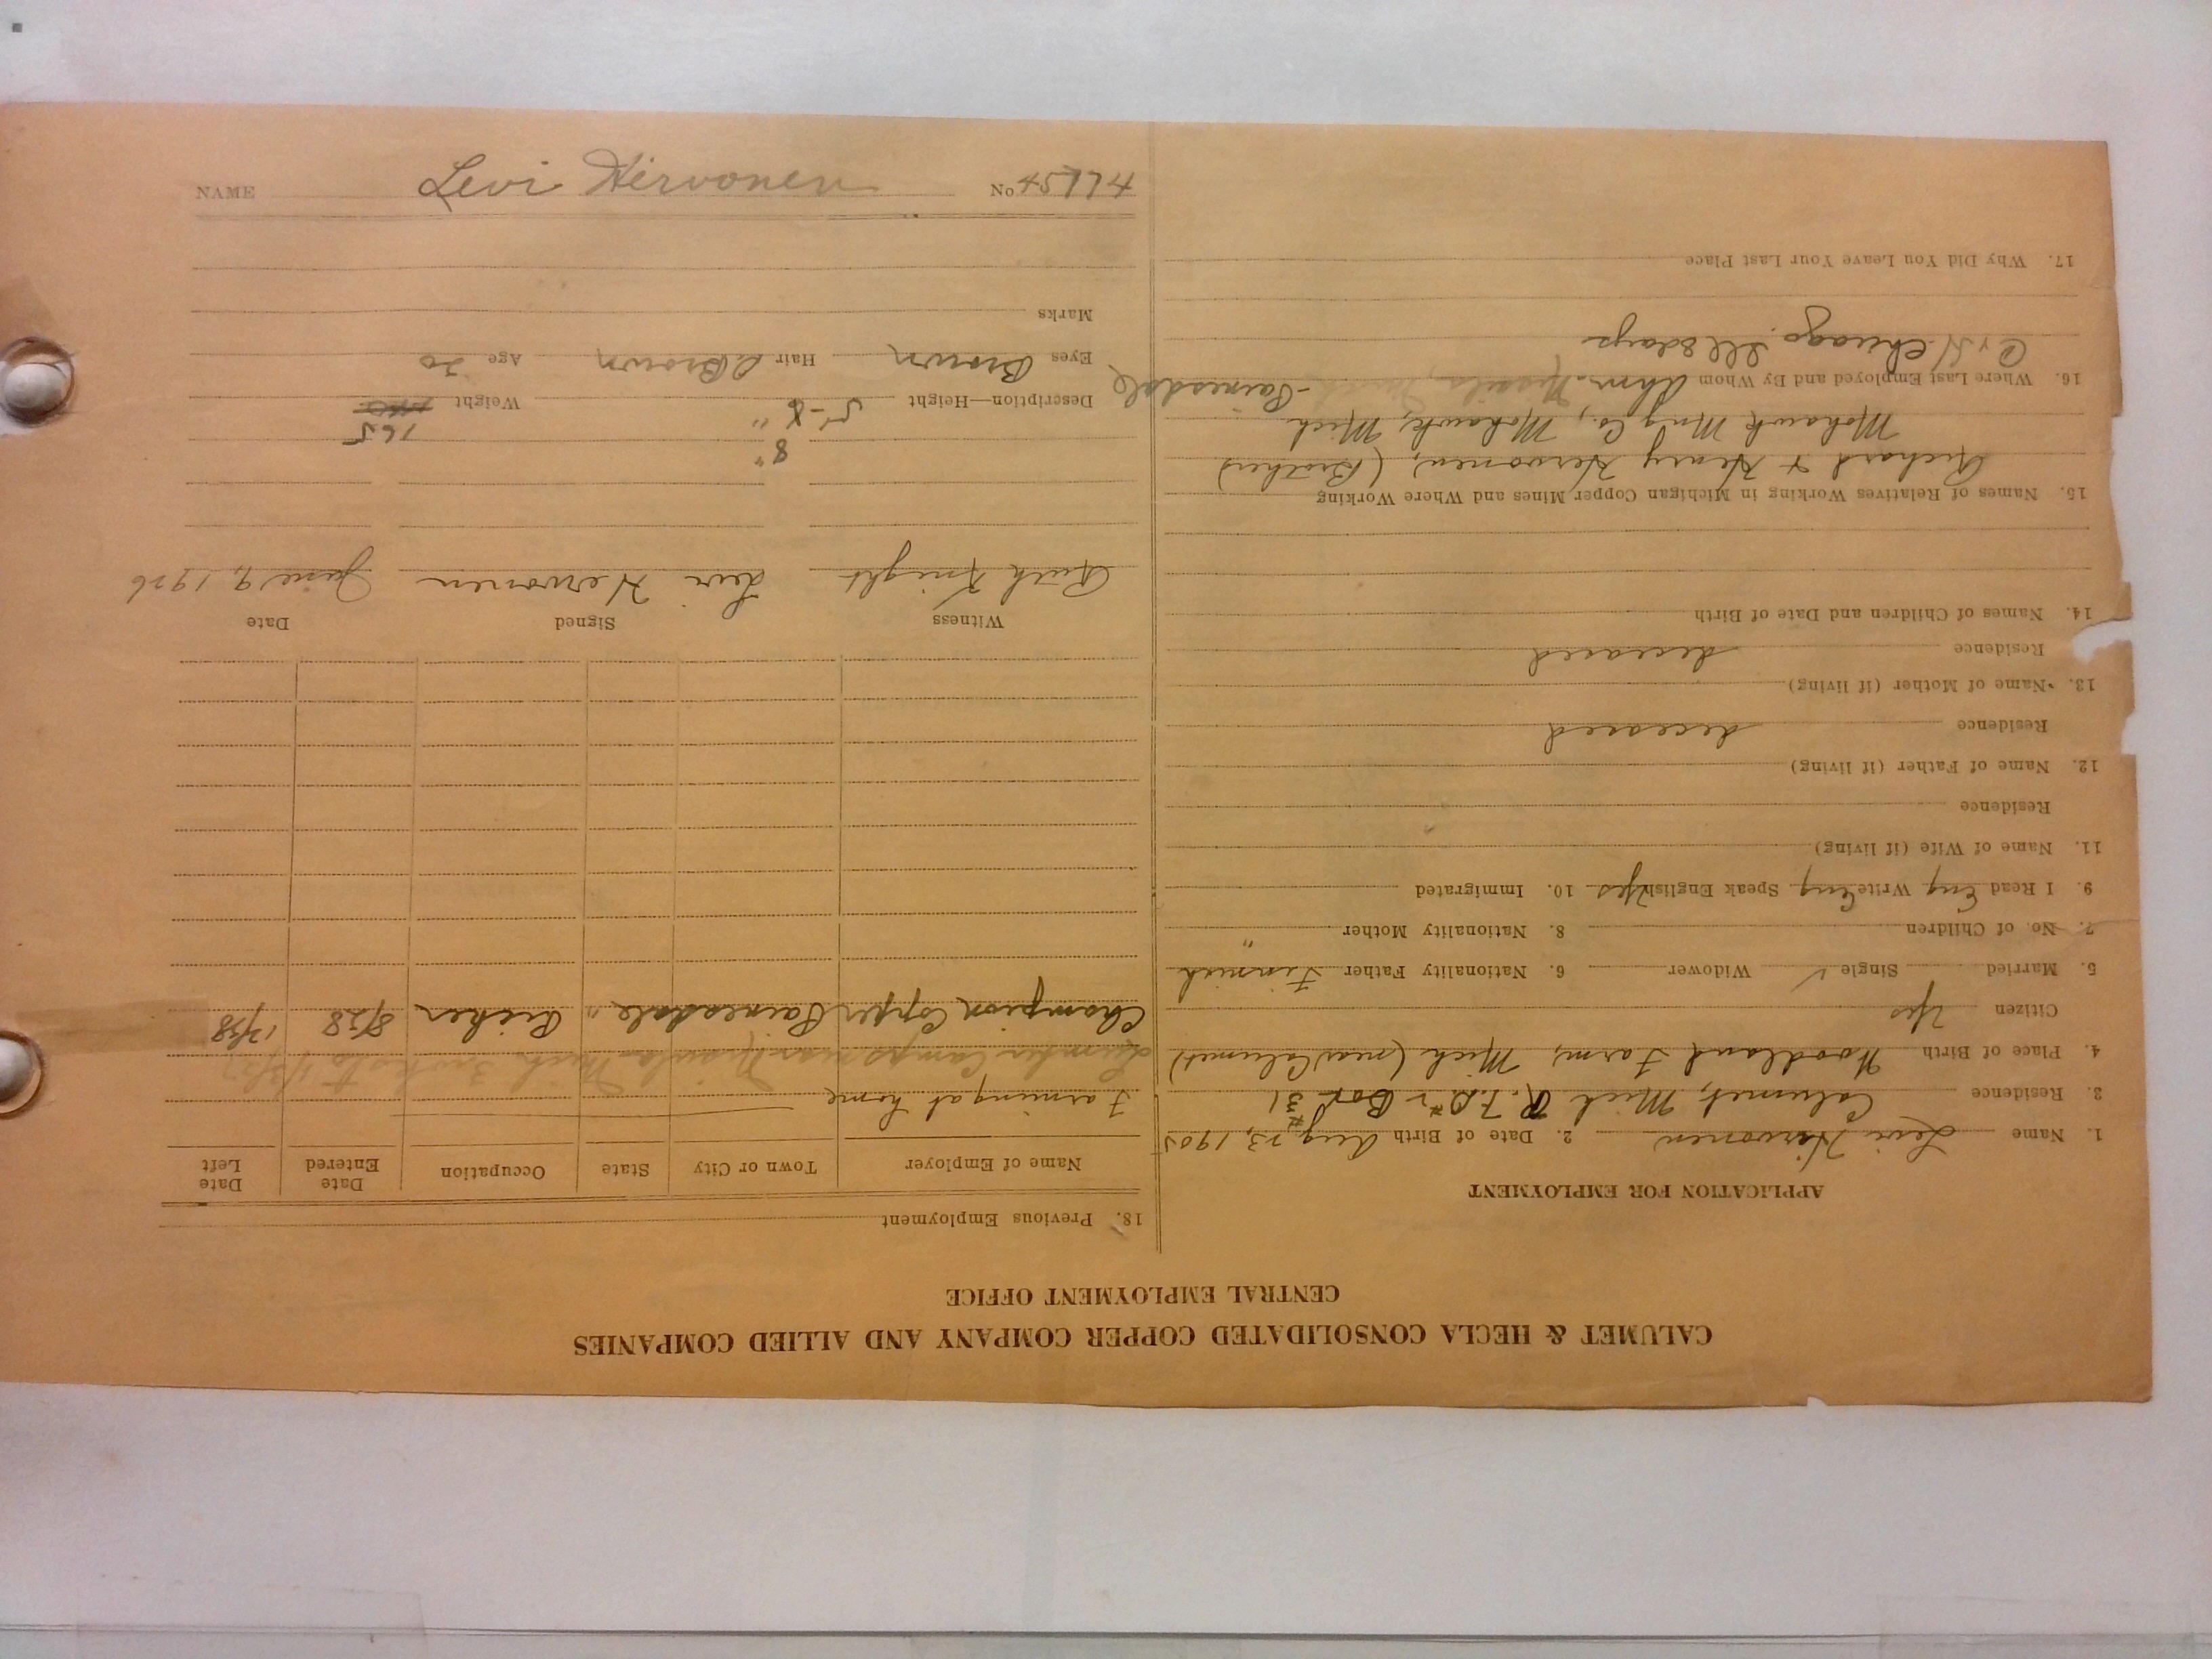 CALUMET & HECLA CONSOLIDATED COPPER COMPANY AND ALLIED COMPANIES
CENTRAL EMPLOYMENT OFFICE
APPLICATION FOR EMPLOYMENT
1. Name Levi Hirvonen 2. Date of Birth Aug 23, 1905
3. Residence Calumet, Mich R.F.D. #2 Box #31
4. Place of Birth Woodland Farm, Mich (near Calumet)
Citizen Yes
5. Married Single ✓ Widower 6. Nationality Father Finnish
7. No. of Children 8. Nationality Mother "
9. I Read Eng Write Eng Speak English Yes 10. Immigrated
11. Name of Wife (if living)
Residence
12. Name of Father (if living)
Residence deceased
13. Name of Mother (if living)
Residence deceased
14. Names of Children and Date of Birth
15. Names of Relatives Working in Michigan Copper Mines and Where Working
Richard & Henry Hervonen, (Brothers)
Mohawk Mng Co., Mohawk, Mich
16. Where Last Employed and By Whom Ahm. - Painesdale
C & H Chicago Ill 8 days
17. Why Did You Leave Your Last Place
18. Previous Employment
Name of Employer Town or City State Occupation Date Entered Date Left
Farming at home
Lumber Camps near Mich 3 wks to
Champion Copper Painesdale " Picker 8/28 12/28
Witness Signed Date
Ruth Knight Levi Hervonen June 9, 1926
8"
165
Description—Height 5-8" Weight
Eyes Brown Hair Brown Age 20
Marks
NAME Levi Hirvonen No 45774